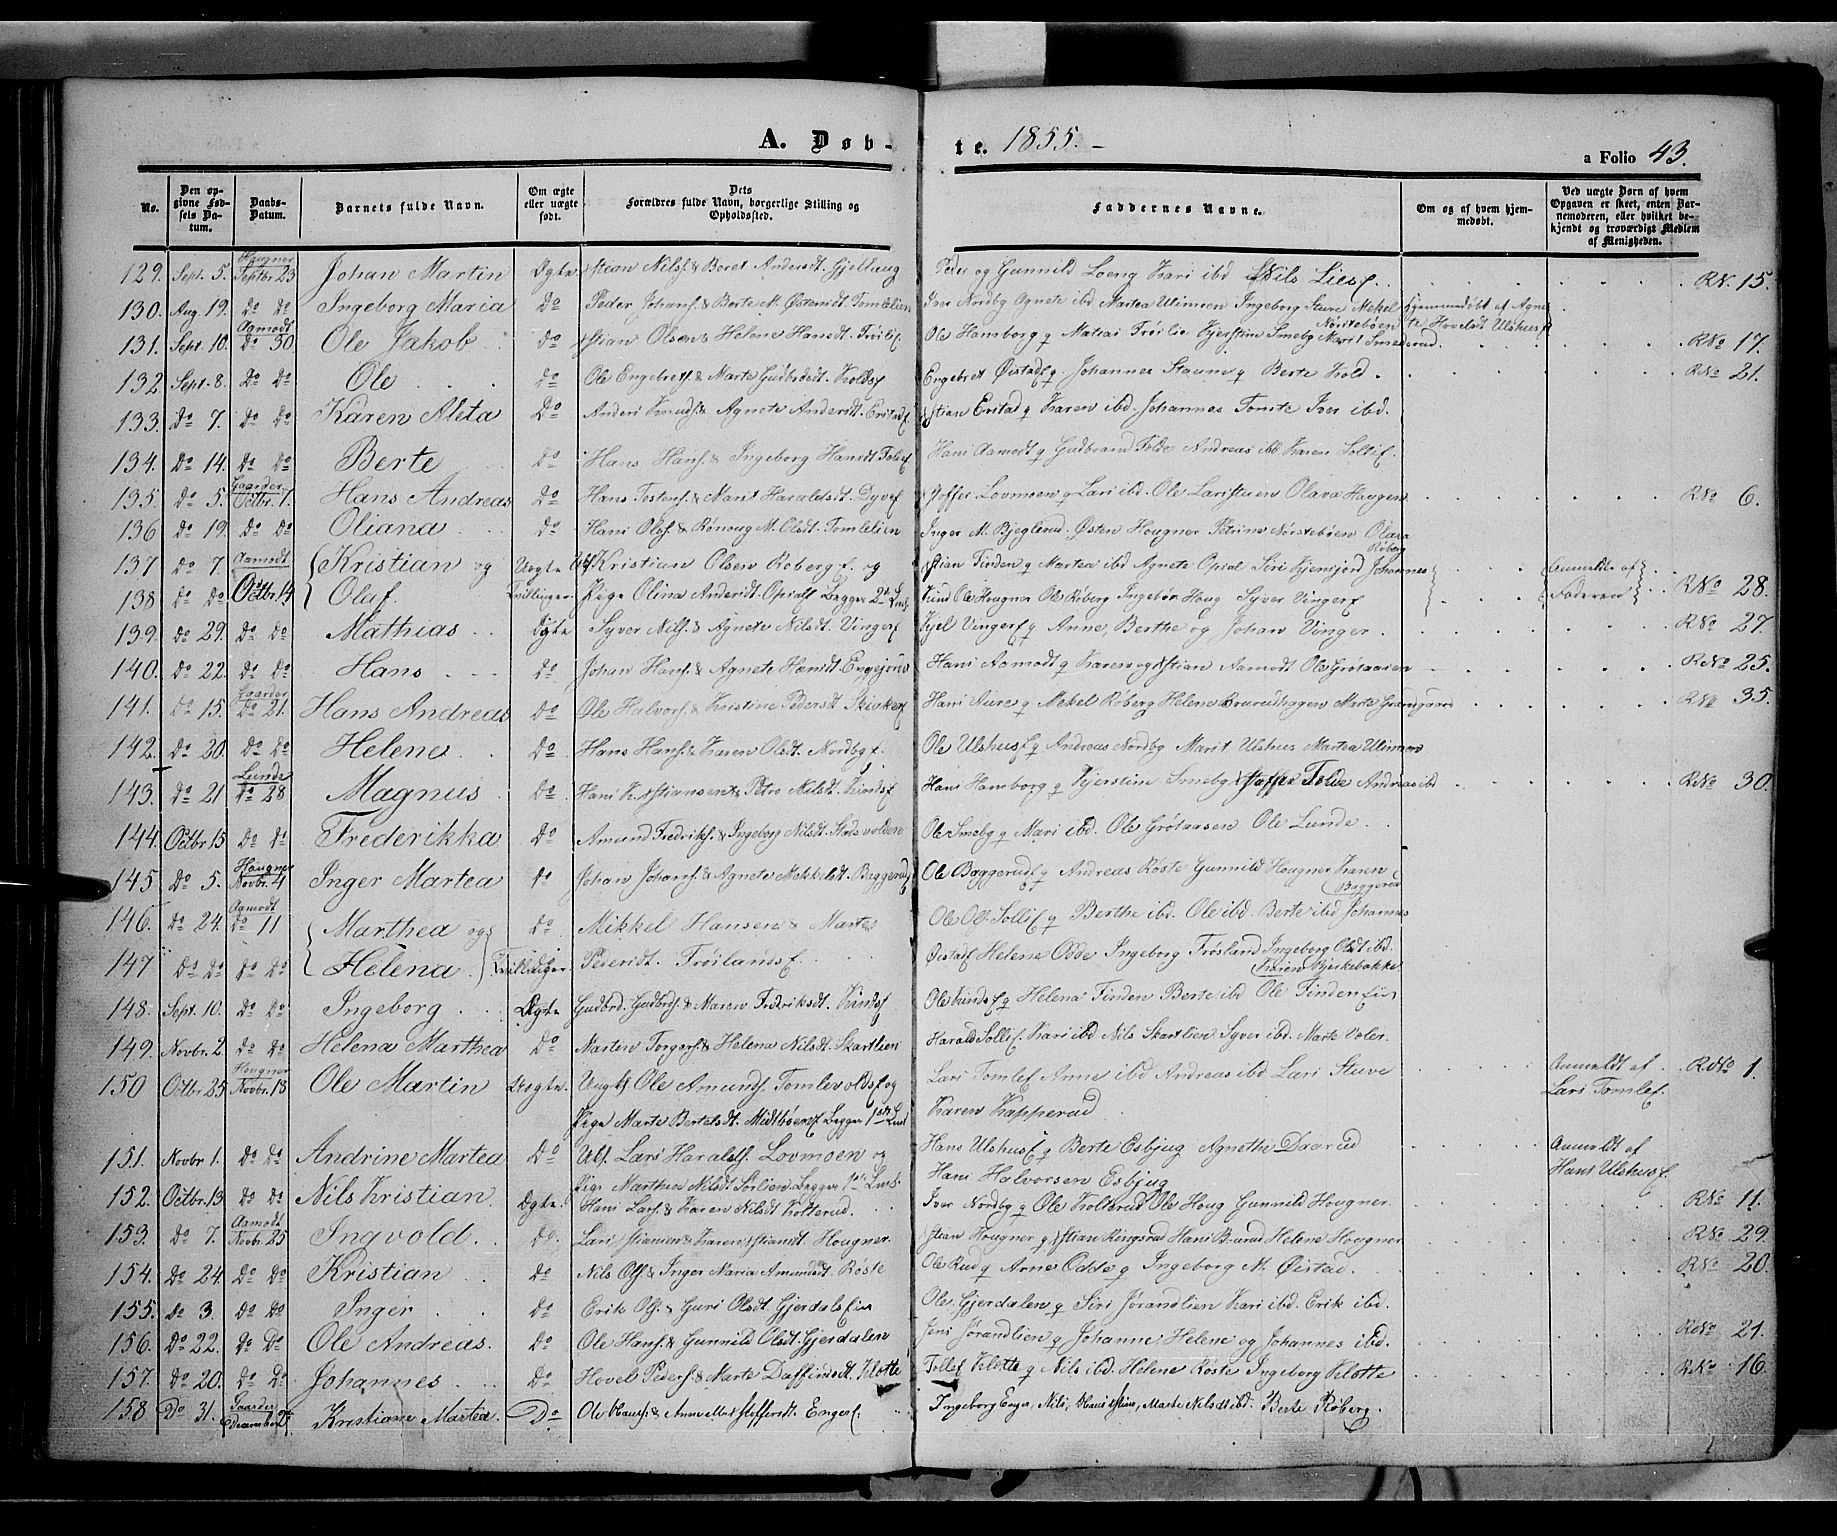 A. Døb-
te. 1855.-
a Folio 43.
No. Den opgivne Fødsels Datum. Daabs-Datum. Barnets fulde Navn. Om ægte eller uægte født. Dets Forældres fulde Navn, borgerlige Stilling og Opholdssted. Faddernes Navne. Om og af hvem hjemmedøbt. Ved uægte Børn af hvem Opgaven er skeet, enten Barnemoderen, eller hvilket bekjendt og troværdigt Medlem af Menigheden.
129. Sept. 5. Hougner Septbr. 23 Johan Martin Ægte Nils. & Beret Andersdt. Gjellaug Peder og Gunnild Loeng Kari ibd Nils Lief. RN. 15.
130. Aug. 19. Do Do Ingeborg Maria Do Peder Johans. & Berte M. Østensdt Tomlelien Iver Nordbg Agnete ibd Martea Ulimoen Ingeborg Stuve Mekel Nörstebøen Hjemmedøbt af Agnete Hovelsdt Ulshusf
131. Sept. 10. Aamodt Do 30. Ole Jakob Do Olsen & Helene Hansdt. Tröilif. Ole Hamborg q Matias Tröilie Kjerstine Smebg Marit Smederud. RNo 17.
132. Sept. 8. Do Do Ole Do Ole Engebretsf & Marte Gudbrdsdt. Koldsf Engebret Øistadf q Johannes Staum q Berte Kold. RNo 21.
133. Do 7. Do Do Karen Aleta Do Anders Knuds. & Agnete Andersdt. Eristadf Eristad q Karen ibd. Johannes Tomte Iver ibd.
134. Do 14. Do Do Berte Do Hans Hansf. & Ingeborg Hansdt Foldef Hans Aamodt q Gudbrand Folde Andreas ibd Karen Sollif.
135. Do 5. Gaarder Octbr. 7. Hans Andreas Do Hans Tostensf. & Marit Haraldsdt. Dyvef Stoffer Lovmoen q Lars ibd. Ole Larsstuen Olava Haugen RNo 6.
136 Do 19. Do Do Oliana Do Hans Olsf. & Rönnoug M. Olsdt. Tomlelien Inger M. Bjeglerud. Østen Hougner Petrine Nörstebøen Olava Röberg
137 Do 7. Aamodt Kristian og Uægte Ubf Kristian Olsen Roberg f. og Finden q Martea ibd Agnete Opsal Siri Kjensjord Johannes Anmeldte af
138 Do Do Octbr. 14 Olaf. Tvillinger. Pige Olina Andersdt. Opsalf Begges 2det Leierm. Kind Ole Hougner Ole Röberg Ingebor Houg Syver Vingerf Faderen RNo 28.
139. Do 29. Do Do Mathias Ægte Syver Nilsf & Agnete Nilsdt. Vingerf Kjel Vingerf q Anne, Berthe og Johan Vinger. RNo 27.
140. Do 22. Do Do Hans Do Johan Hansf. & Agnete Hansdt Engejord Hans Aamodt q Karen og Aamodt Ole Grötaasen RNo 25.
141. Do 15. Gaarder Do 21. Hans Andreas Do Ole Halvorsf. & Kristine Pedersdt Skiakerf Hans Aure q Mekel Röberg Helene Brurudhagen Marte RNo 35.
142. Do 20. Do Do Helene Do Hans Hansf. & Karen Olsdt. Nordbg f. Ole Ulshusf q Andreas Nordbg Marit Ulshus Martea Ulimoen
143. Do 21 Lunde Do 28 Magnus Do Hans Kristiansen & Petro Nilsdt. Kindsf Hans Hamborg q Kjerstine Smebg Stoffer Folde Andreas ibd RNo 30.
144. Octbr. 15 Do Do Frederikka Do Amund Fredriksf. & Ingeborg Nilsdt. Stadsvolden Ole Smebg q Mari ibd. Ole Grötaasen Ole Lunde
145 Do 5. Hougner Novbr. 4 Inger Martea do Johan Johansf. & Agnete Mekkelsdt. Baggerudf Ole Baggerudf q Andreas Röste Gunnild Hougner Karen Baggerud
146. Do 24. Aamodt Do 11 Marthea og Do. Mikkel Hansen & Marte Ole Olsf Sollif q Berthe ibd. Ole ibd. Berte ibd Johannes
147 Do Do Do Do Helena Tvillinger. Pedersdt. Tröilandsf. Øistadf Helene Odde Ingeborg Trösland Ingeborg Olsdt ibd. Karen Bjerkebakke
148. Sept. 10. Do Do Ingeborg Ægte Gudbrd. Gudbrdsf. & Maren Fredriksdt. Kindsf Ole Kindsf q Helena Finden Berte ibd Ole Findeneie
149. Novbr. 2. Do Do Helena Marthea Do Marten Torgersf. & Helena Nilsdt. Skartlien Harald Sollif. Kari ibd Nils Skartlien Syver ibd. Marte Volen.
150 Octbr. 25 Hougner Novbr. 18 Ole Martin Uægte. Ungk Ole Amundsf. Tomlevoldsf og Lars Tomlef Anne ibd Andreas ibd Lars Stuve Anmeldt af Lars Tomlef. RNo 1.
Pige Marte Bertelsdt. Midtbøenf. Begges 1ste Leierm Karen Kapperud
151. Novbr 1. Do Do Andrine Martea Do Ubf. Lars Haralsf. Lovmoen og Hans Ulshusf q Berte Esbjug Agnethe Daarud Anmeldt af Hans Ulshusf.
Pige Marthea Nilsdt Sörlien. Begges 1ste Leierm. Hans Halvorsen Esbjug
152. Octbr. 13 Do Do Nils Kristian Ægte. Hans Larsf. & Karen Nilsdt Kolterud. Iver Nordbg q Ole Kolterud Ole Houg Gunnild Hougner. RNo 11.
153. Do 7. Aamodt Novbr. 25 Ingvold. Do. Lars & Karen Hougner. Hougner q Ringsrud Hans Bruud Helene Hougner RNo 29.
154. Do 24. Do Do Kristian Do Nils Olsf. & Inger Maria Amundsdt Röste Ole Rud q Arne Odde q Ingeborg M. Øistad. RNo 20.
155. Do 3. Do Do Inger Do Erik Olsf. & Guri Olsdt. Gjerdaleie Ole Gjerdalen q Siri Jörandlien Kari ibd. Erik ibd.
156. Do 22. Do Do Ole Andreas. Do Ole Hansf. & Gunnild Olsdt. Gjerdalen Jens Jörandlien q Johanne, Helene og Johannes ibd. RNo 24.
157. Do 20. Do Do Johannes Do Hovel Pedersf. & Marte Daffinsdt. Klotte Tollef Klotte q Nils ibd. Helene Röste Ingeborg Klotte RNo 16.
158 Do 31. Gaarder December 2 Kristiane Martea. Do Ole Hansf. & Anne Mar. Stoffersdt. Engerf. Ingeborg Enger, Nils, Hans, Marte Nilsdt ibd. Berte Röberg.